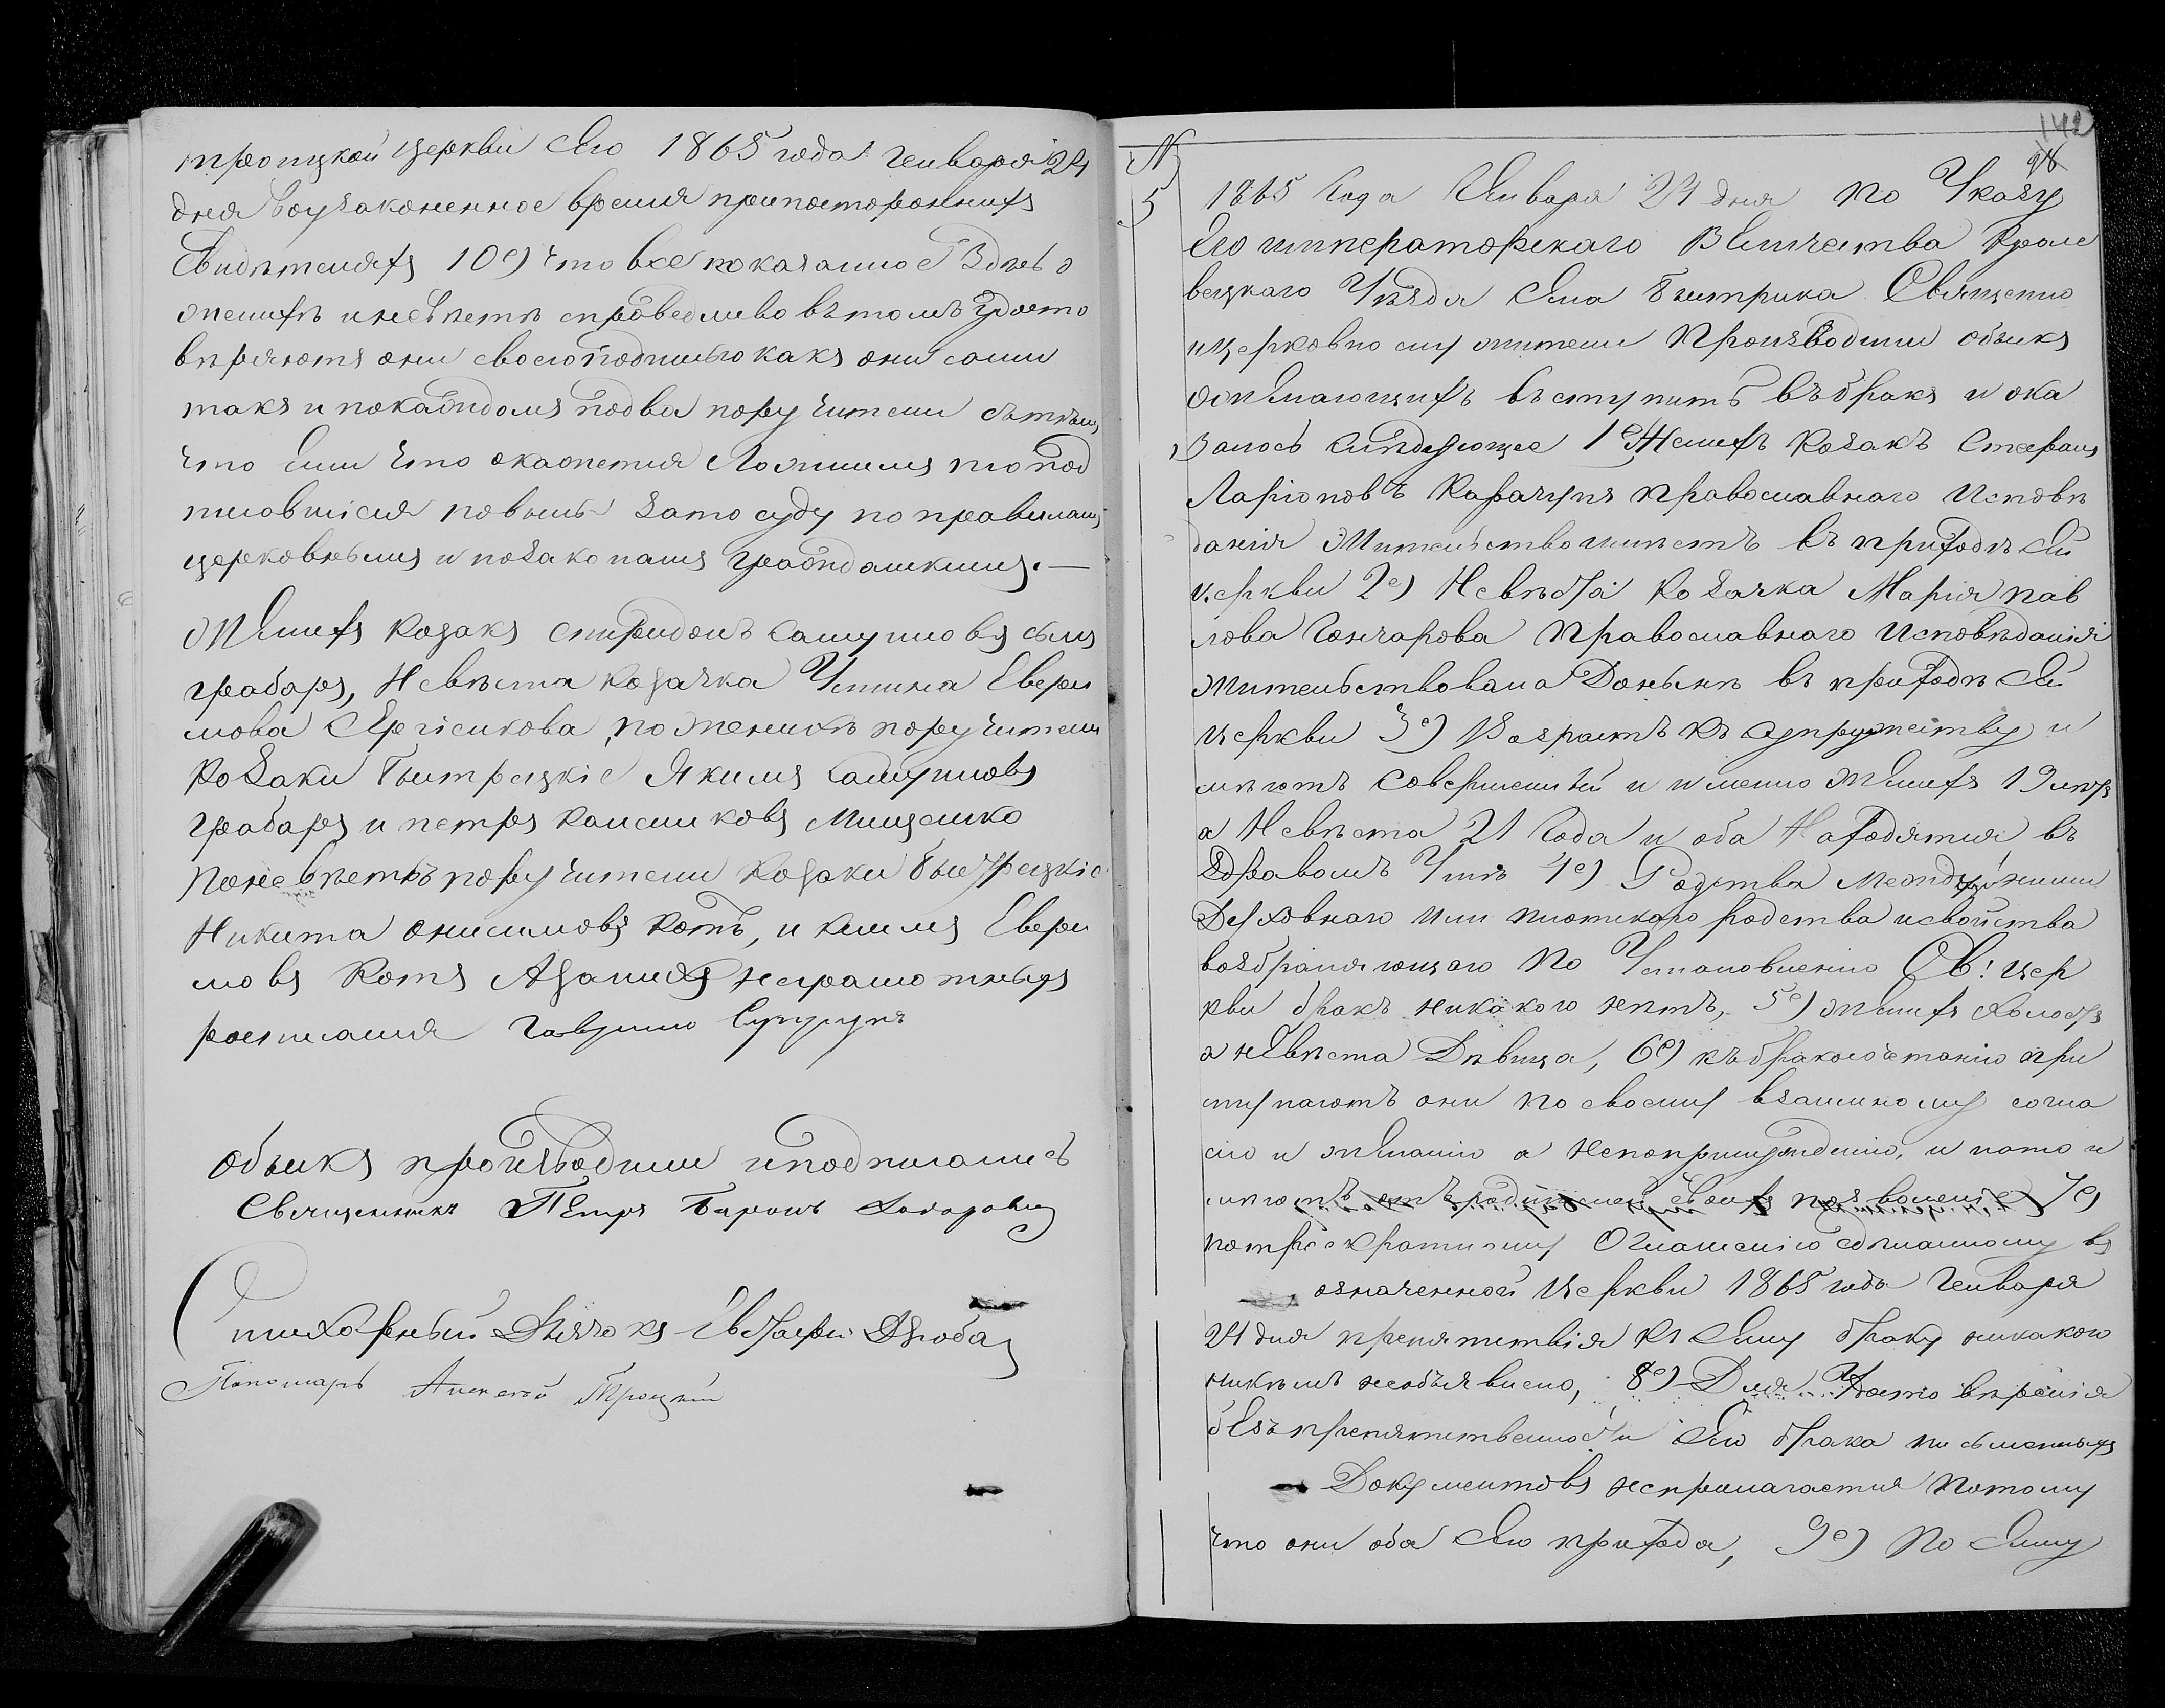 троицкой церкви сего 1865 года Генваря 24
дня воузаконенное время припосторонних
Свидетелях 10е) что все показанное Здесь о
женихе иневесте справедливо вътомъ удосто
веряютъ они своею подписью какъ они сами
такъ и покаждомъ подва поручители съ темъ
что Ели что окажется Ложнымъ то под
писовшiися повины зато суду по правиламъ
церковнымъ и позаконамъ гражданскимъ.—
Женихъ козакъ Спиридонъ Самуиловъ сынъ
грабаръ, Невеста козачка Устина Евери
мова по женихе поручители
Козаки Быстрецкiе Якимъ Самуиловъ
грабаръ и петръ Мищенко
поневесте поручители козаки быстрецкiе
Никита Онисимовъ Котъ, и Климъ Евери
мовъ Котъ Азанихъ неграмотныхъ
росписался Гавриило Супрунъ
Обыскъ производили иподписались
Священникъ Петръ Баронъ
Стихарный Дьячокъ Евстафiй Дзюба
Пономарь Алексей Троцкiй
142
98
№
5 1865 Года Января 24 дня По Указу
Его императорскаго Величества Кроле
вецкаго Уезда Села Быстрика Священно
ицерковно служители Производили обыскъ
ожелающихъ въступить въбракъ и ока
залось Следующее 1е Женихъ козакъ Стефанъ
Ларiоновъ Карачунъ православнаго Испове
данiя Жительствоимеетъ въ приходе сей
церкви 2е) Невеста Козачка Марiя пав
лова Гончарова Православнаго Исповеданiя
жительствовала Доныне въ приходе сей
церкви 3е) Возрастъ къ супружеству и
меютъ совершенный и именно женихъ 19 летъ
а Невеста 21 Года и оба Находятся въ
здравомъ Уме 4е) Родства между ними
Духовнаго или плотскаго родства исвойства
возбраняющаго По Установленiю Св: цер
кви бракъ никакого нетъ, 5е) женихъ холостъ
а невеста Девица, 6е) къбракосочетанiю при
ступаютъ они По своему взаимному согла
сiю и желанiю а Непопринужденiю, и нато и
меютъ отъ родителей своихъ позволенiе 7е)
потроекратному Оглашенiю сделанному въ
означенной церкви 1865 года Генваря
24 дня препятствiя къ сему браку никакого
никемъ необъявлено, 8е) Для Удостоверенiя
безъпрепятственности сего брака письменныхъ
Документовъ неприлагается Потому
что они оба сего прихода, 9е) По сему